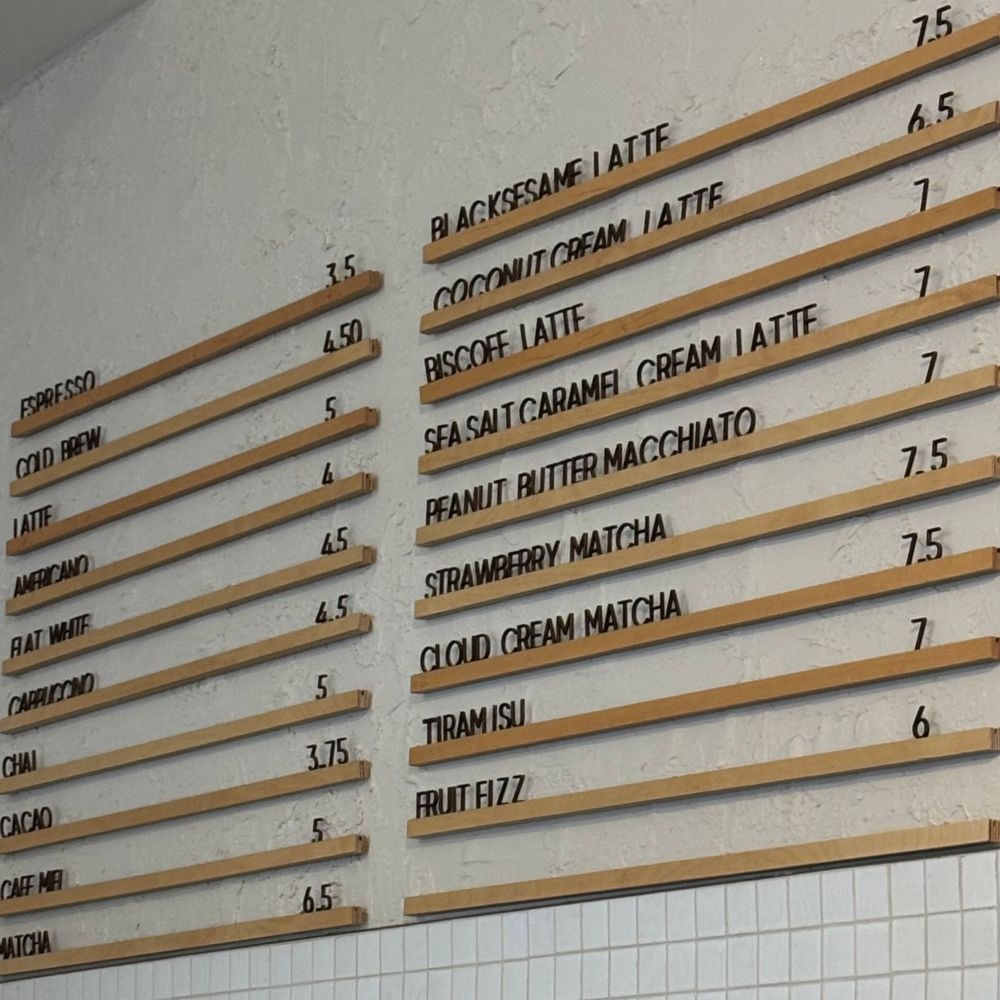 ESPRESSO 3.5
COLD BREW 4.50
LATTE 5
AMERICANO 4
FLAT WHITE 4.5
CAPPUCCINO 4.5
CHAI 5
CACAO 3.75
CAFE MIEL 5
MATCHA 6.5
BLACKSESAME LATTE 7.5
COCONUT CREAM LATTE 6.5
BISCOFF LATTE 7
SEA SALT CARAMEL CREAM LATTE 7
PEANUT BUTTER MACCHIATO 7
STRAWBERRY MATCHA 7.5
CLOUD CREAM MATCHA 7.5
TIRAMISU 7
FRUIT FIZZ 6